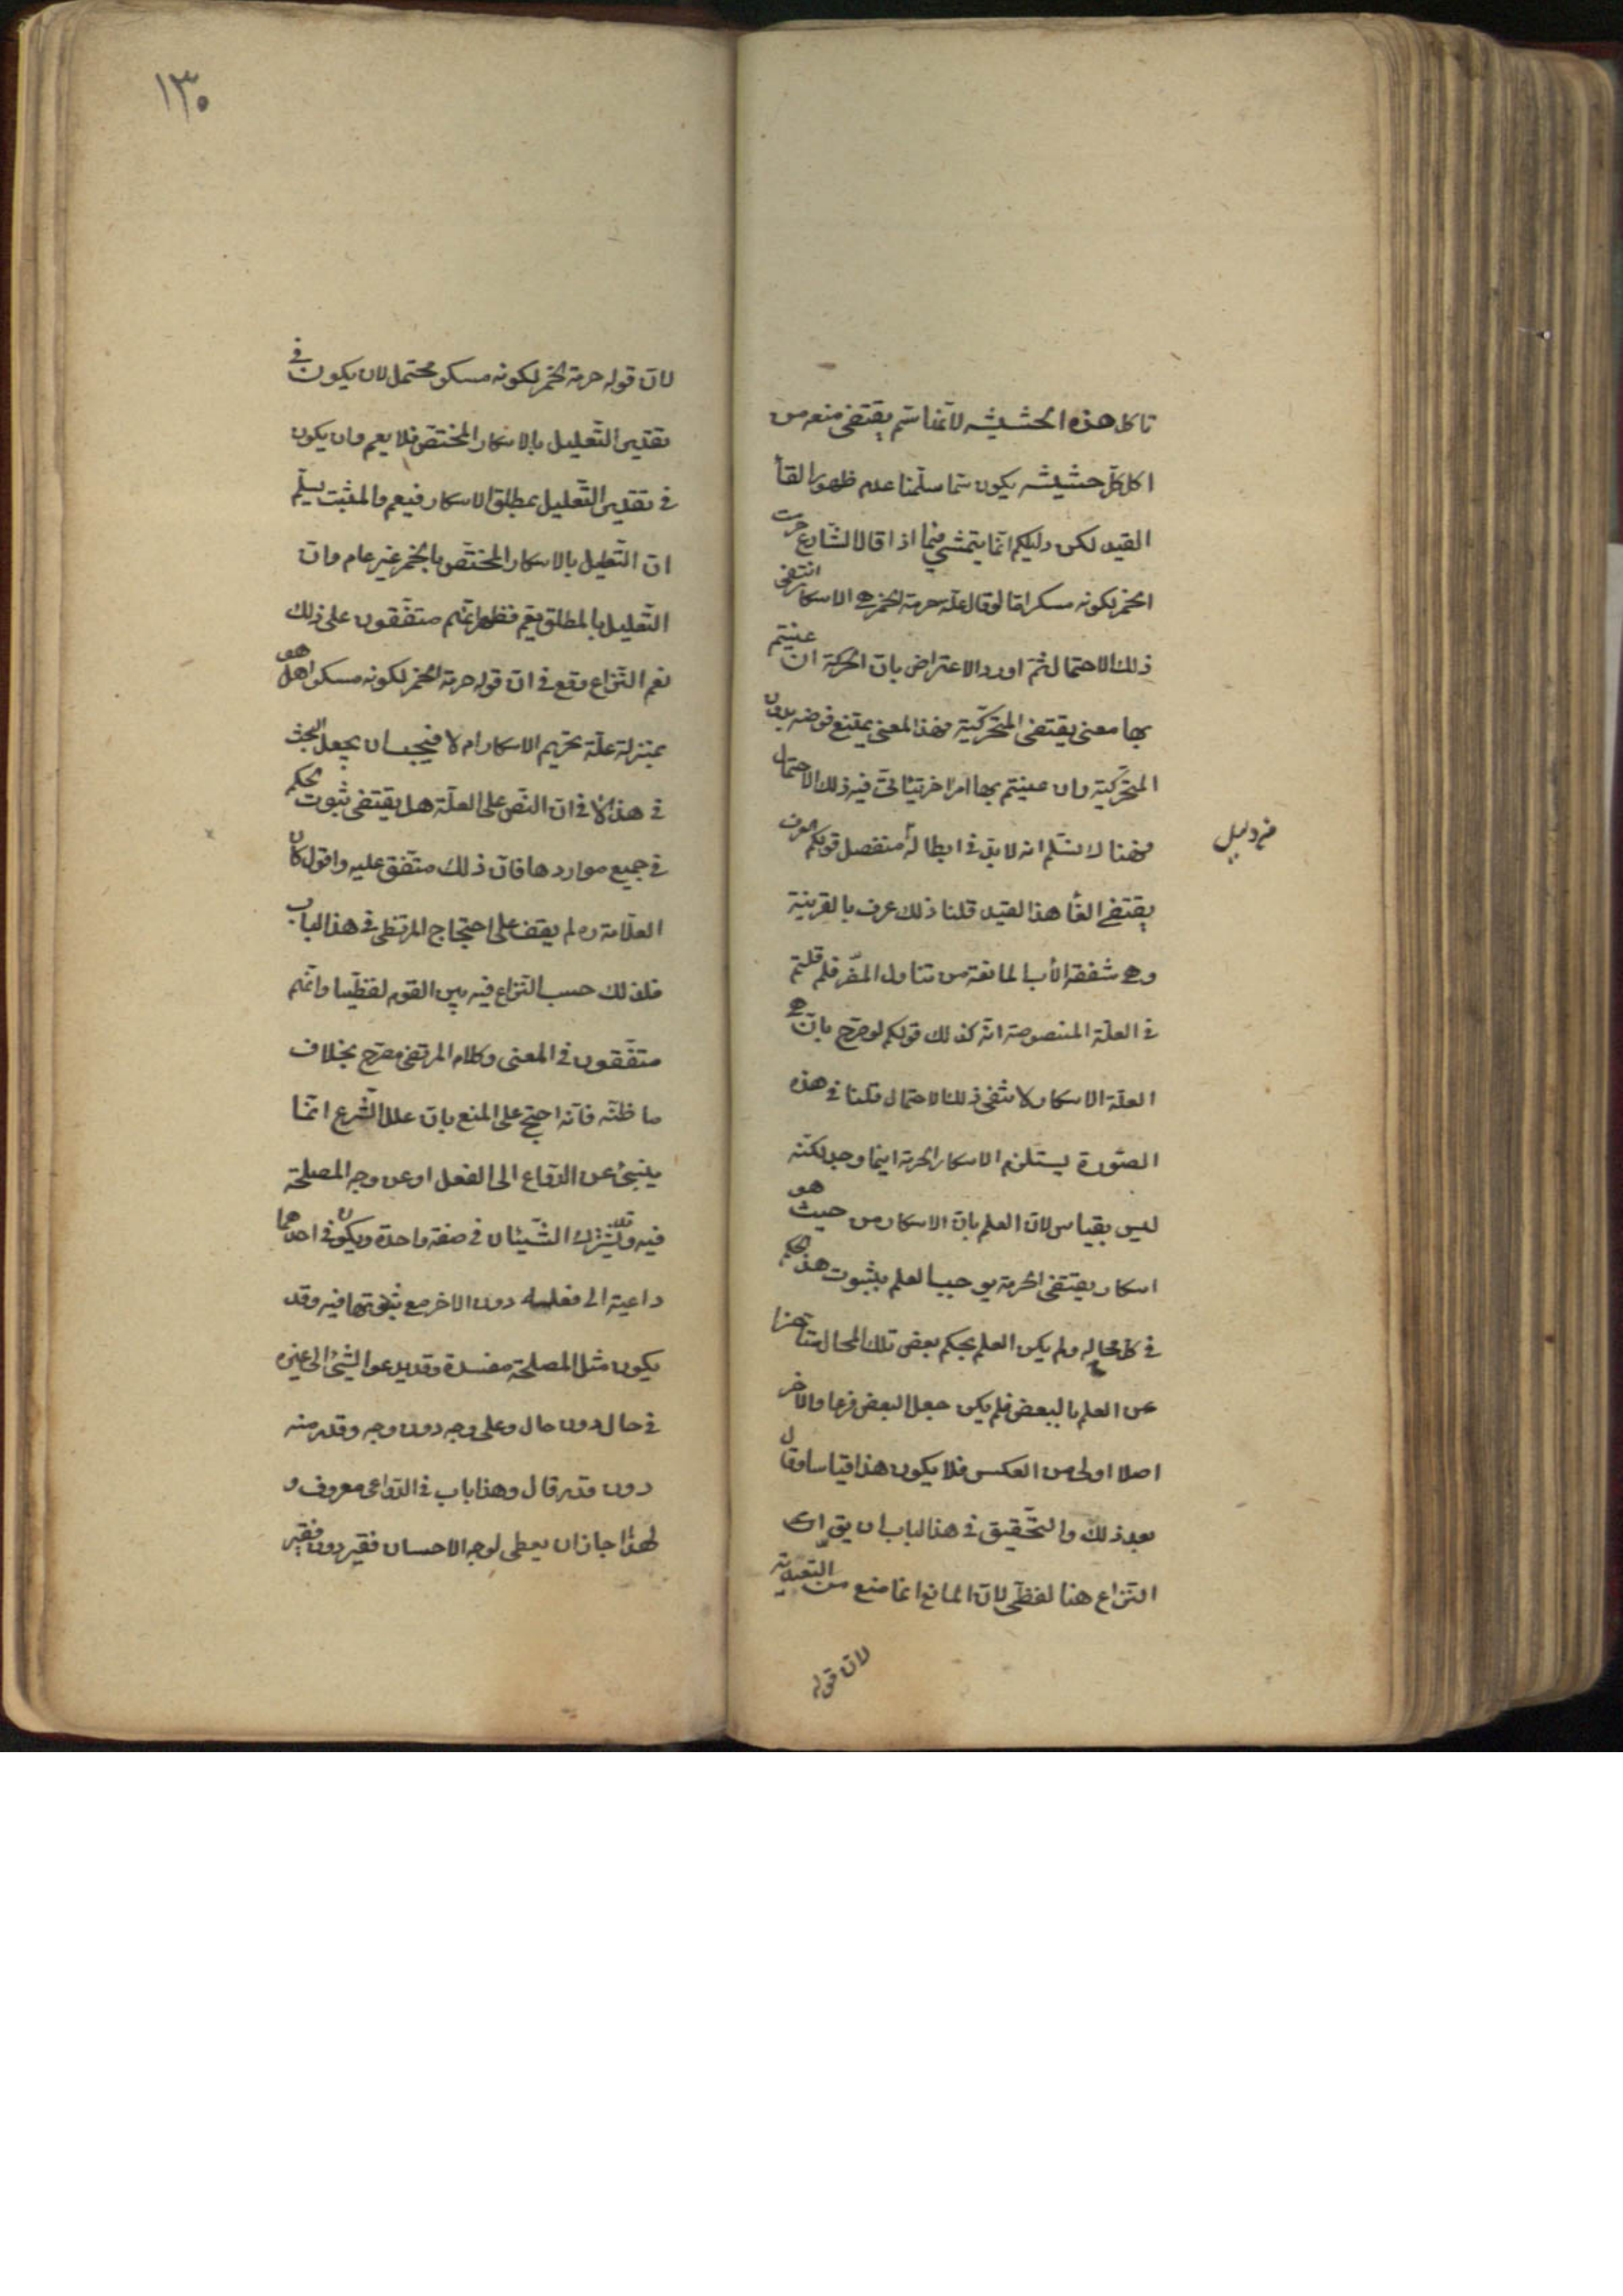 تاكل هذه الحشيشه لانها سم يقتضى منعه من
اكل كل حشيشه يكون سما سلمنا عدم ظهور القا
القيد لكن دليلكم انما يتمشى فيما اذا قال الشارع حرمت
الخمر لكونه مسكرا اما لو قال علة حرمة الخمر هى الاسكار انتفى
ذلك الاحتمال ثم اورد الاعتراض بان الحركة ان عنيتم
بها معنى يقتضى المتحركية فهذا المعنى يمتنع فرضه بدون
المتحركية وان عنيتم بها امرا اخر يتاتى فيه ذلك الاحتمال
فهنا لا نسلم انه لابد فى ابطاله منفصل قولكم العرف
من دليل
يقتضى الغا هذا القيد قلنا ذلك عرف بالقرينة
وهى شفقة الأب المانعة من تناول المضر فلم قلتم
فى العلة المنصوصة انه كذلك قولكم لو صرح بان
العلة الاسكار لانتفى ذلك الاحتمال قلنا فى هذه
الصورة يستلزم الاسكار الحرمة اينما وجد لكنه
ليس بقياس لان العلم بان الاسكار من حيث هو
اسكار يقتضى الحرمة يوجب العلم بثبوت هذا الحكم
فى كل محاله ولم يكن العلم بحكم بعض تلك المحال متاخرا
عن العلم بالبعض فلم يكن جعل البعض فرعا والاخر
اصلا اولى من العكس فلا يكون هذا قياسا وقال
بعد ذلك والتحقيق فى هذا الباب ان يق ان
النزاع هنا لفظى لان المانع انما منع من التعدية
لان قوله
١٣٠
لان قوله حرمة الخمر لكونه مسكر محتمل لان يكون فى
تقدير التعليل بالاسكار المختص فلا يعم وان يكون
فى تقدير التعليل بمطلق الاسكار فيعم والمثبت يسلم
ان التعليل بالاسكار المختص بالخمر غير عام وان
التعليل بالمطلق يعم فظهر انهم متفقون على ذلك
نعم النزاع وقع فى ان قوله حرمة الخمر لكونه مسكرا هل هو
بمنزلة علة تحريم الاسكار ام لا فيجب ان يجعل البحث
فى هذا لا فى ان النص على العلة هل يقتضى ثبوت الحكم
فى جميع مواردها فان ذلك متفق عليه واقول كان
العلامة ره لم يقف على احتجاج المرتضى فى هذا الباب
فلذلك حسب النزاع فيه بين القوم لفظيا وانهم
متفقون فى المعنى وكلام المرتضى مصرح بخلاف
ما ظنه فانه احتج على المنع بان علل الشرع انما
ينبئ عن الدواع الى الفعل او عن وجه المصلحة
فيه وقد يشترك الشيئان فى صفة واحدة ويكون فى احدهما
داعية الى فعله دون الاخر مع ثبوتها فيه وقد
يكون مثل المصلحة مفسدة وقد يدعو الشئ الى غيره
فى حال دون حال وعلى وجه دون وجه وقدر منه
دون قدر قال وهذا باب فى الدواعى معروف و
لهذا جاز ان يعطى لوجه الاحسان فقير دون فقير